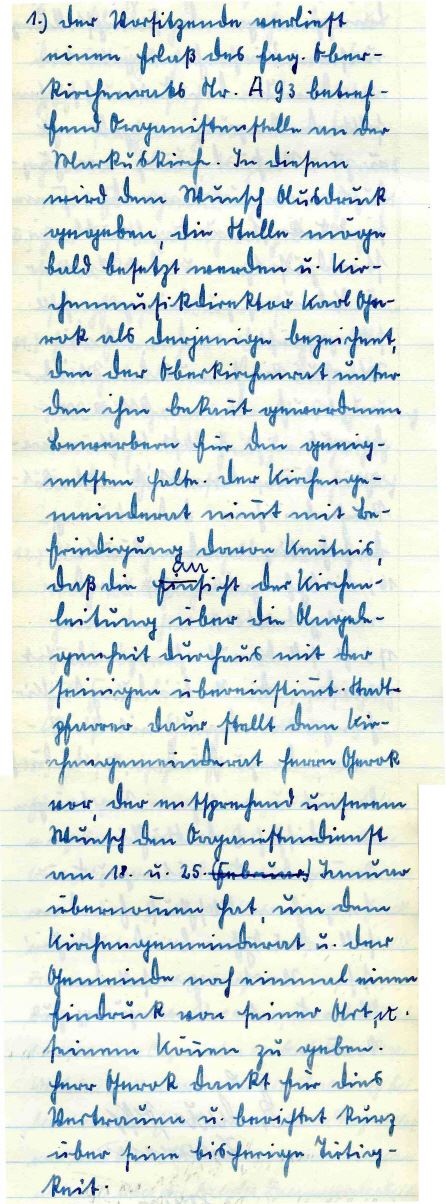 1.) Der Vorsitzende verliest
einen Erlaß des Evg. Ober-
kirchenrats Nr. A 93 betref-
fend Organistenstelle an der
Markuskirche. In diesem
wird dem Wunsch Ausdruck
gegeben, die Stelle möge
bald besetzt werden u. Kir-
chenmusikdirektor Karl Ge-
rok als derjenige bezeichnet,
den der Oberkirchenrat unter
den ihm bekan̄t gewordenen
Bewerbern für den geeig-
netsten halte. Der Kirchenge-
meinderat nim̄t mit Be-
friedigung davon Ken̄tnis,
an
daß die Einsicht der Kirchen-
leitung über die Angele-
genheit durchaus mit der
seinigen übereinstim̄t. Stadt-
pfarrer Daur stellt dem Kir-
chengemeinderat Herrn Gerok
vor, der entsprechend unserem
Wunsch den Organistendienst
am 18. u. 25. (Februar) Januar
übernom̄en hat, um dem
Kirchengemeinderat u. der
Gemeinde noch einmal einen
Eindruck von seiner Art u.
seinem Kön̄en zu geben.
Herr Gerok dankt für dies
Vertrauen u. berichtet kurz
über seine bisherige Tätig-
keit.